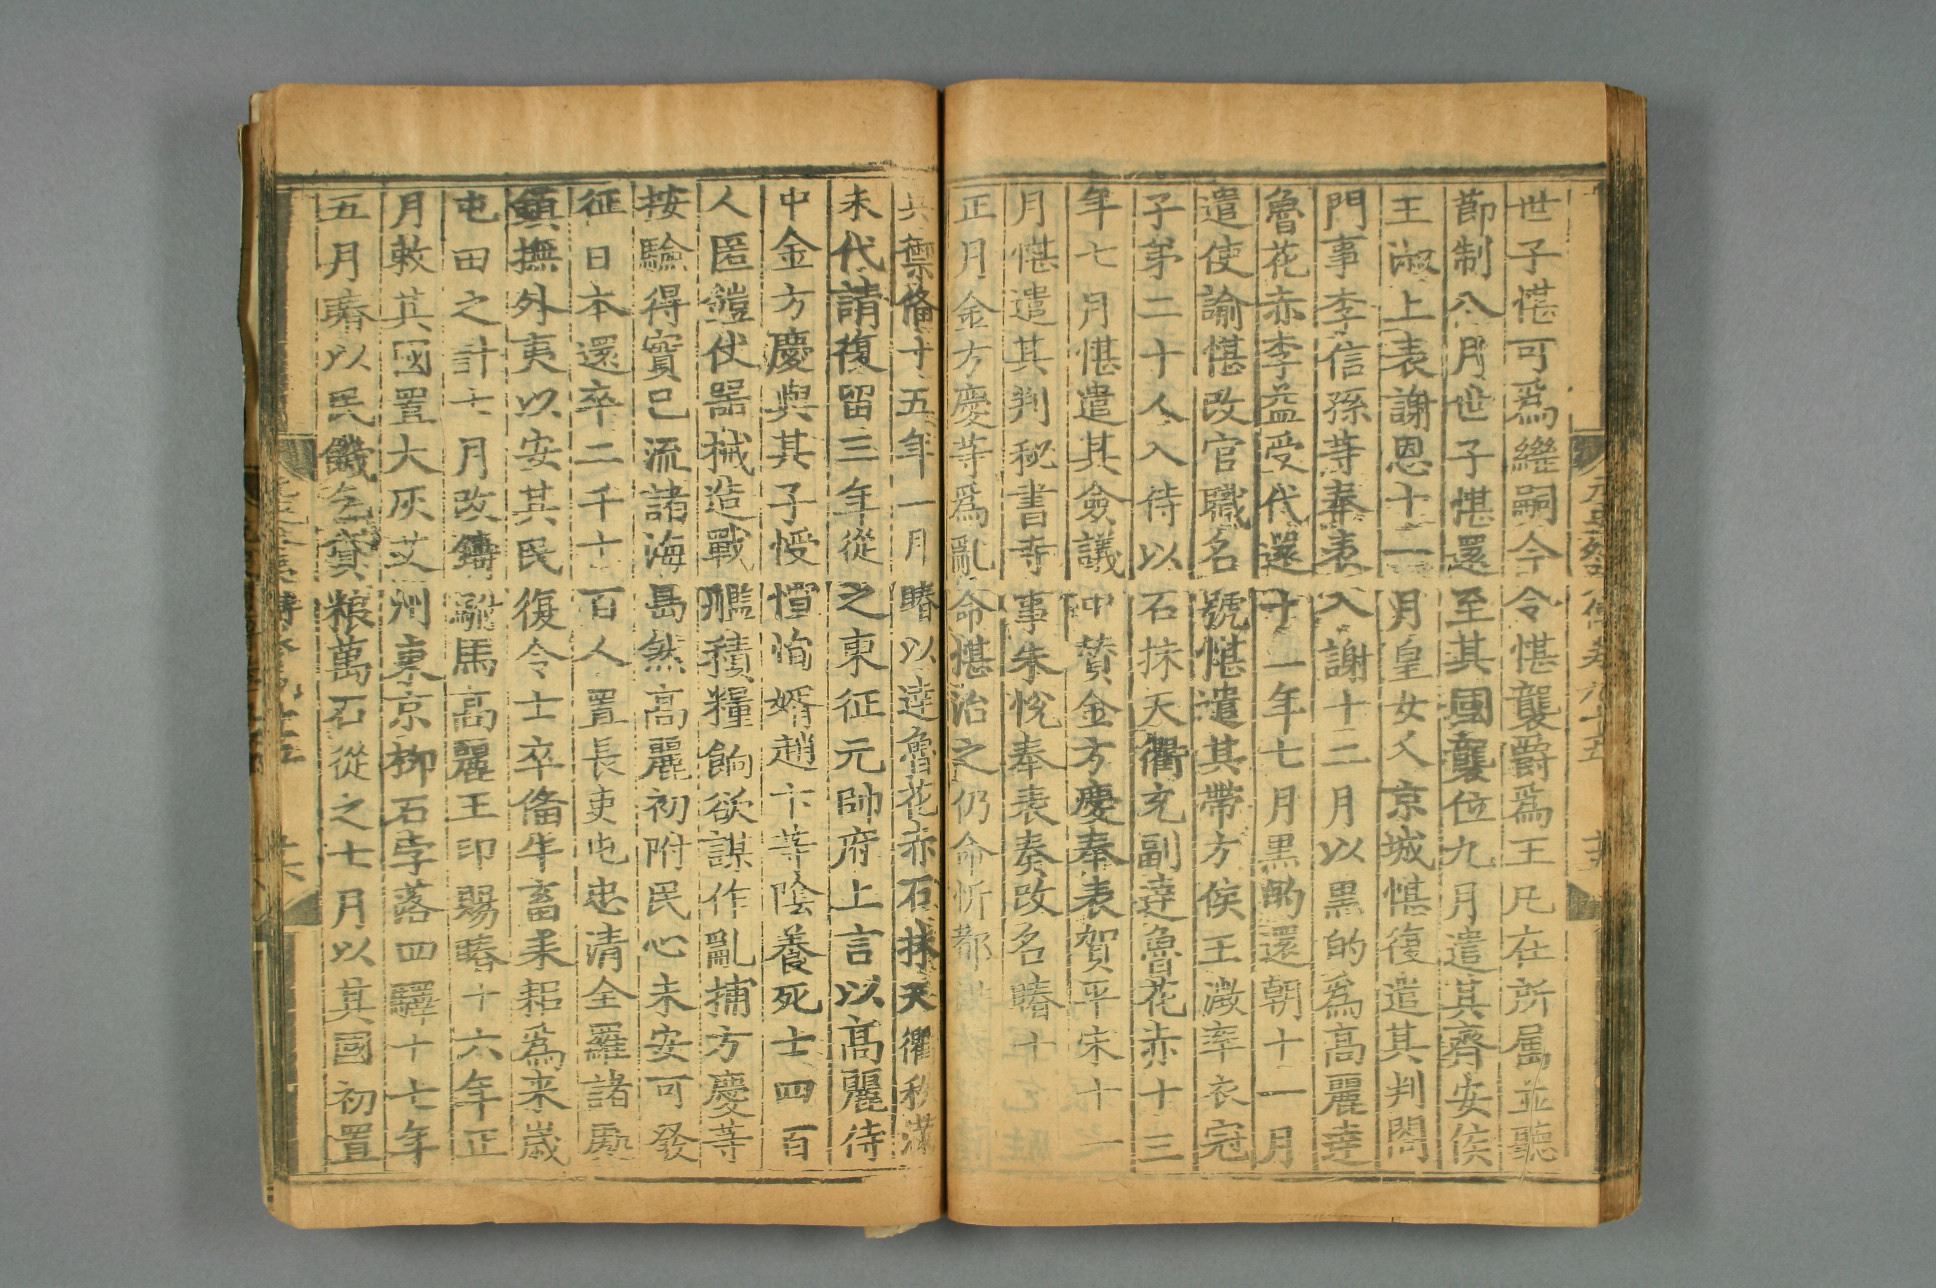 世子愖可爲繼嗣今令愖襲爵爲王凡在所属並聽
節制八月世子愖還至其國襲位九月遣其齊安侯
王淑上表謝恩十一月皇女入京城愖復遣其判閤
門事李信孫等奉表入謝十二月以黑的爲高麗達
魯花赤李益受代還十一年七月黑的還朝十一月
遣使諭愖改官職名號愖遣其帶方侯王澂率衣冠
子弟二十人入侍以石抹天衢充副達魯花赤十三
年七月愖遣其僉議中贊金方慶奉表賀平宋十一
月愖遣其判秘書寺事朱悅奉表奏改名賰十
正月金方慶等爲亂命愖治之仍命忻都
兵禦俻十五年一月賰以達魯花赤石抹天衢秩滿
未代請復留三年從之東征元帥府上言以高麗侍
中金方慶與其子愋愃恂婿趙卞等陰養死士四百
人匿鎧仗噐械造戰艦積糧餉欲謀作亂捕方慶等
按驗得實已流諸海島然高麗初附民心未安可發
征日本還卒二千七百人置長吏屯忠清全羅諸處
鎮撫外夷以安其民復令士卒俻牛畜耒耜爲来歲
屯田之計七月改鑄駙馬高麗王印賜賰十六年正
月敕其國置大灰艾州東京柳石孛落四驛十七年
五月賰以民饑乞貸粮萬石從之七月以其國初置